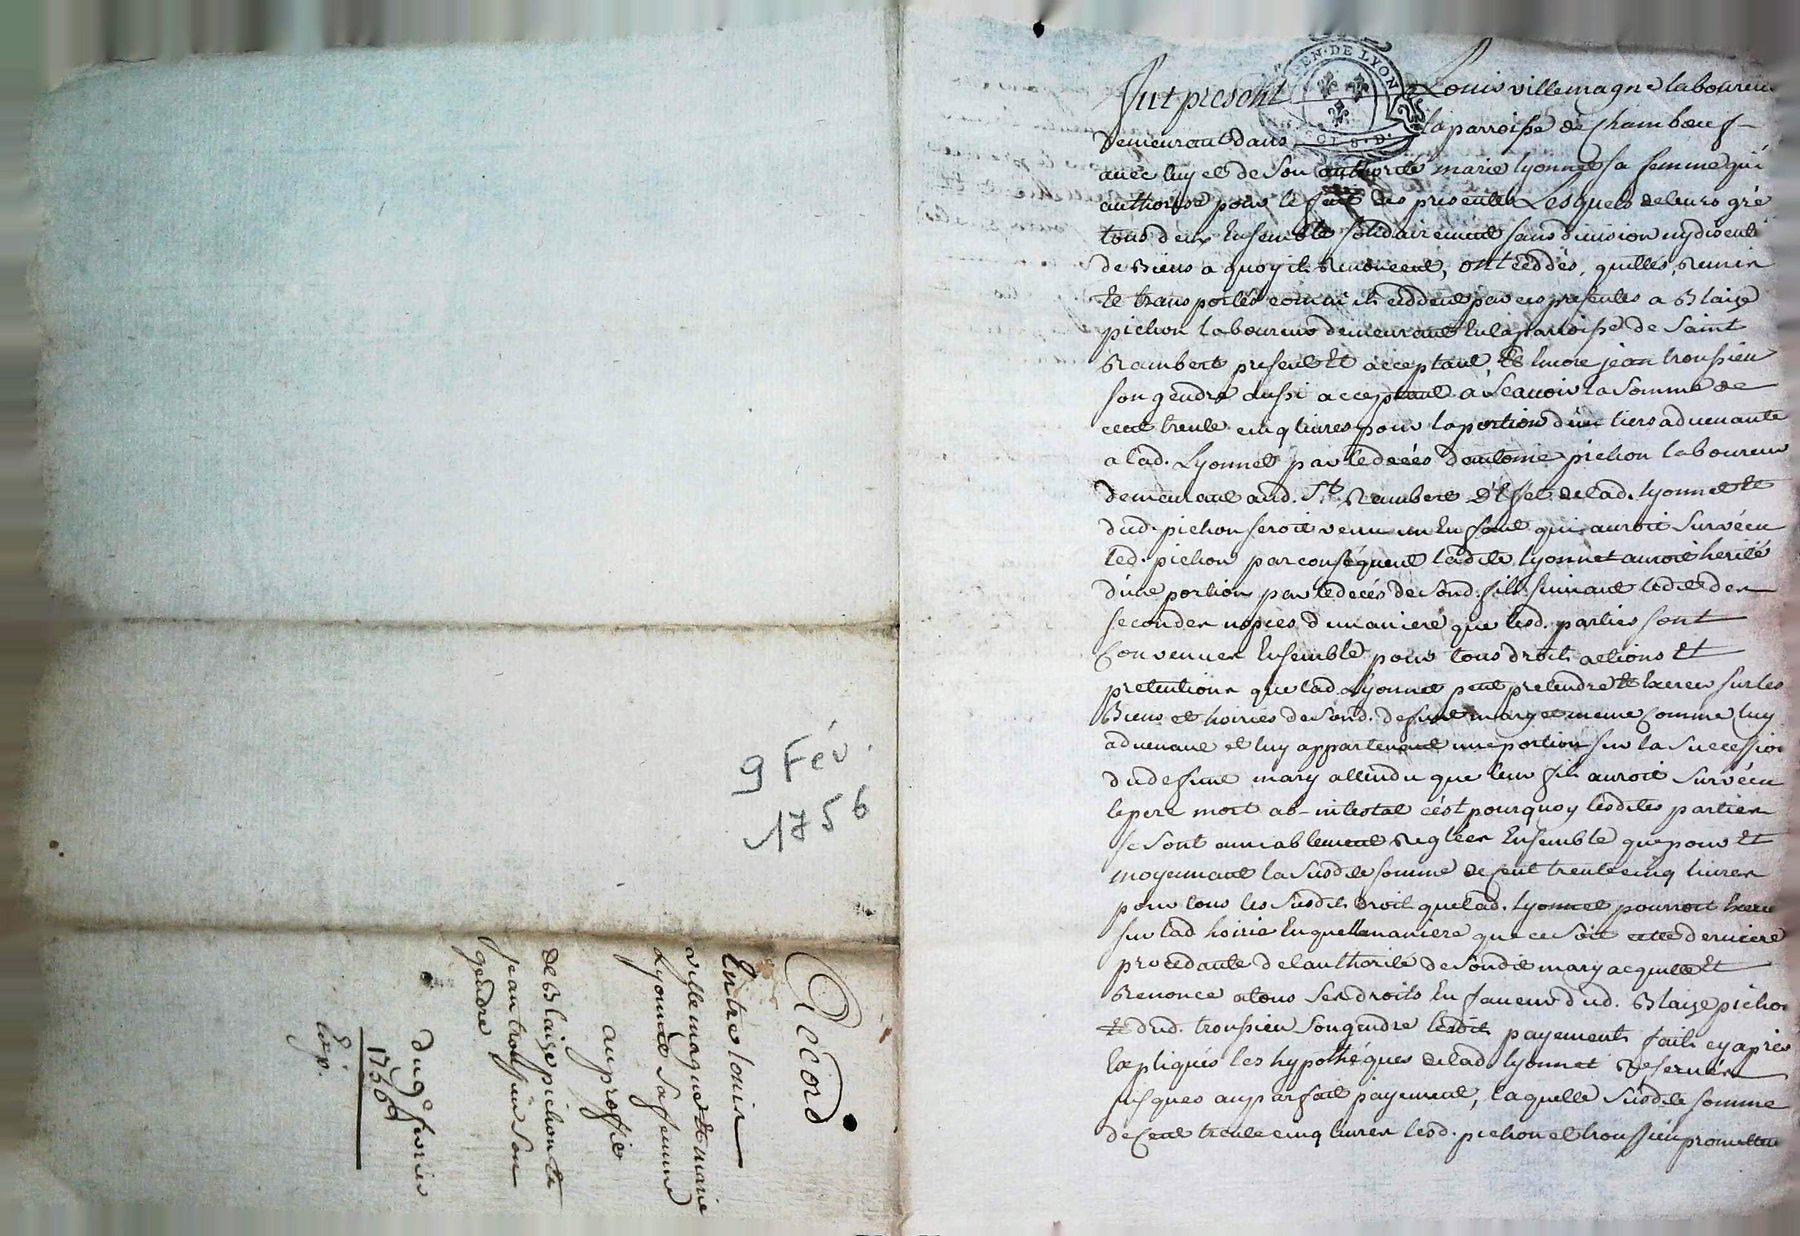 9 Fév.
1756
Accord
Entre louis
villemagne et marie
Lyonnet sa femme
au proffit
de Blaize pichon et
jean troussieu son
gendre
du 9e fevrier
1756
Exp.
GEN. DE LYON
Fut present Louis villemagne laboureur
demeurant dans la parroisse de Chambœuf
avec luy et de son authorité marie lyonnet sa femme qu'il
authorise pour le fait des presentes Lesquels de leurs gré
tous deux Ensemble solidairement sans division ny discution
de Biens a quoy ils Renoncent, ont ceddés, quittés, Remis
Et transportés comme ils ceddent par ces presentes a Blaize
pichon laboureur demeurant En la parroisse de Saint
Rambert present Et acceptant, Et Encore jean troussieu
son gendre aussi acceptant a Scavoir la Somme de
cent trente cinq livres pour la portion d'un tiers advenante
a lad. Lyonnet par le decés d'antoine pichon laboureur
demeurant aud. St. Rambert d'Effet de lad. Lyonnet Et
dud. pichon seroit venu un Enfant qui auroit Survécu
led. pichon par conséquent ladite lyonnet auroit herité
d'une portion par le decés de Sond. fils suivant ledit des
secondes nopces d'maniere que lesd. parties sont
Convenues Ensemble pour tous droits actions Et
pretentions que lad. Lyonnet peut pretendre Et Exercer sur les
Biens et hoiries de Sond. defunt mary et meme Comme luy
advenant et luy appartenant une portion sur la Succession
dud defunt mary attendu que leur fils auroit Survécu
le pere mort ab-intestat c'est pourquoy lesdites parties
se sont amiablement Reglées Ensemble que pour Et
moyennant la Susdite somme de Cent trente cinq livres
pour tous les Susdits droits que lad. lyonnet pourroit Exercer
sur lad hoirie En quelle maniere que ce Soit cette derniere
procedante de l'authorité de Sondit mary acquitte Et
Renonce a tous Ses droits En faveur dud. Blaize pichon
Et dud. troussieu Son gendre lesdits payements faits cy apres
Expliqués les hypothéques de lad lyonnet Reservées
jusques au parfait payement, laquelle Susdite somme
de Cent trente cinq livres lesd. pichon et troussieu promettent